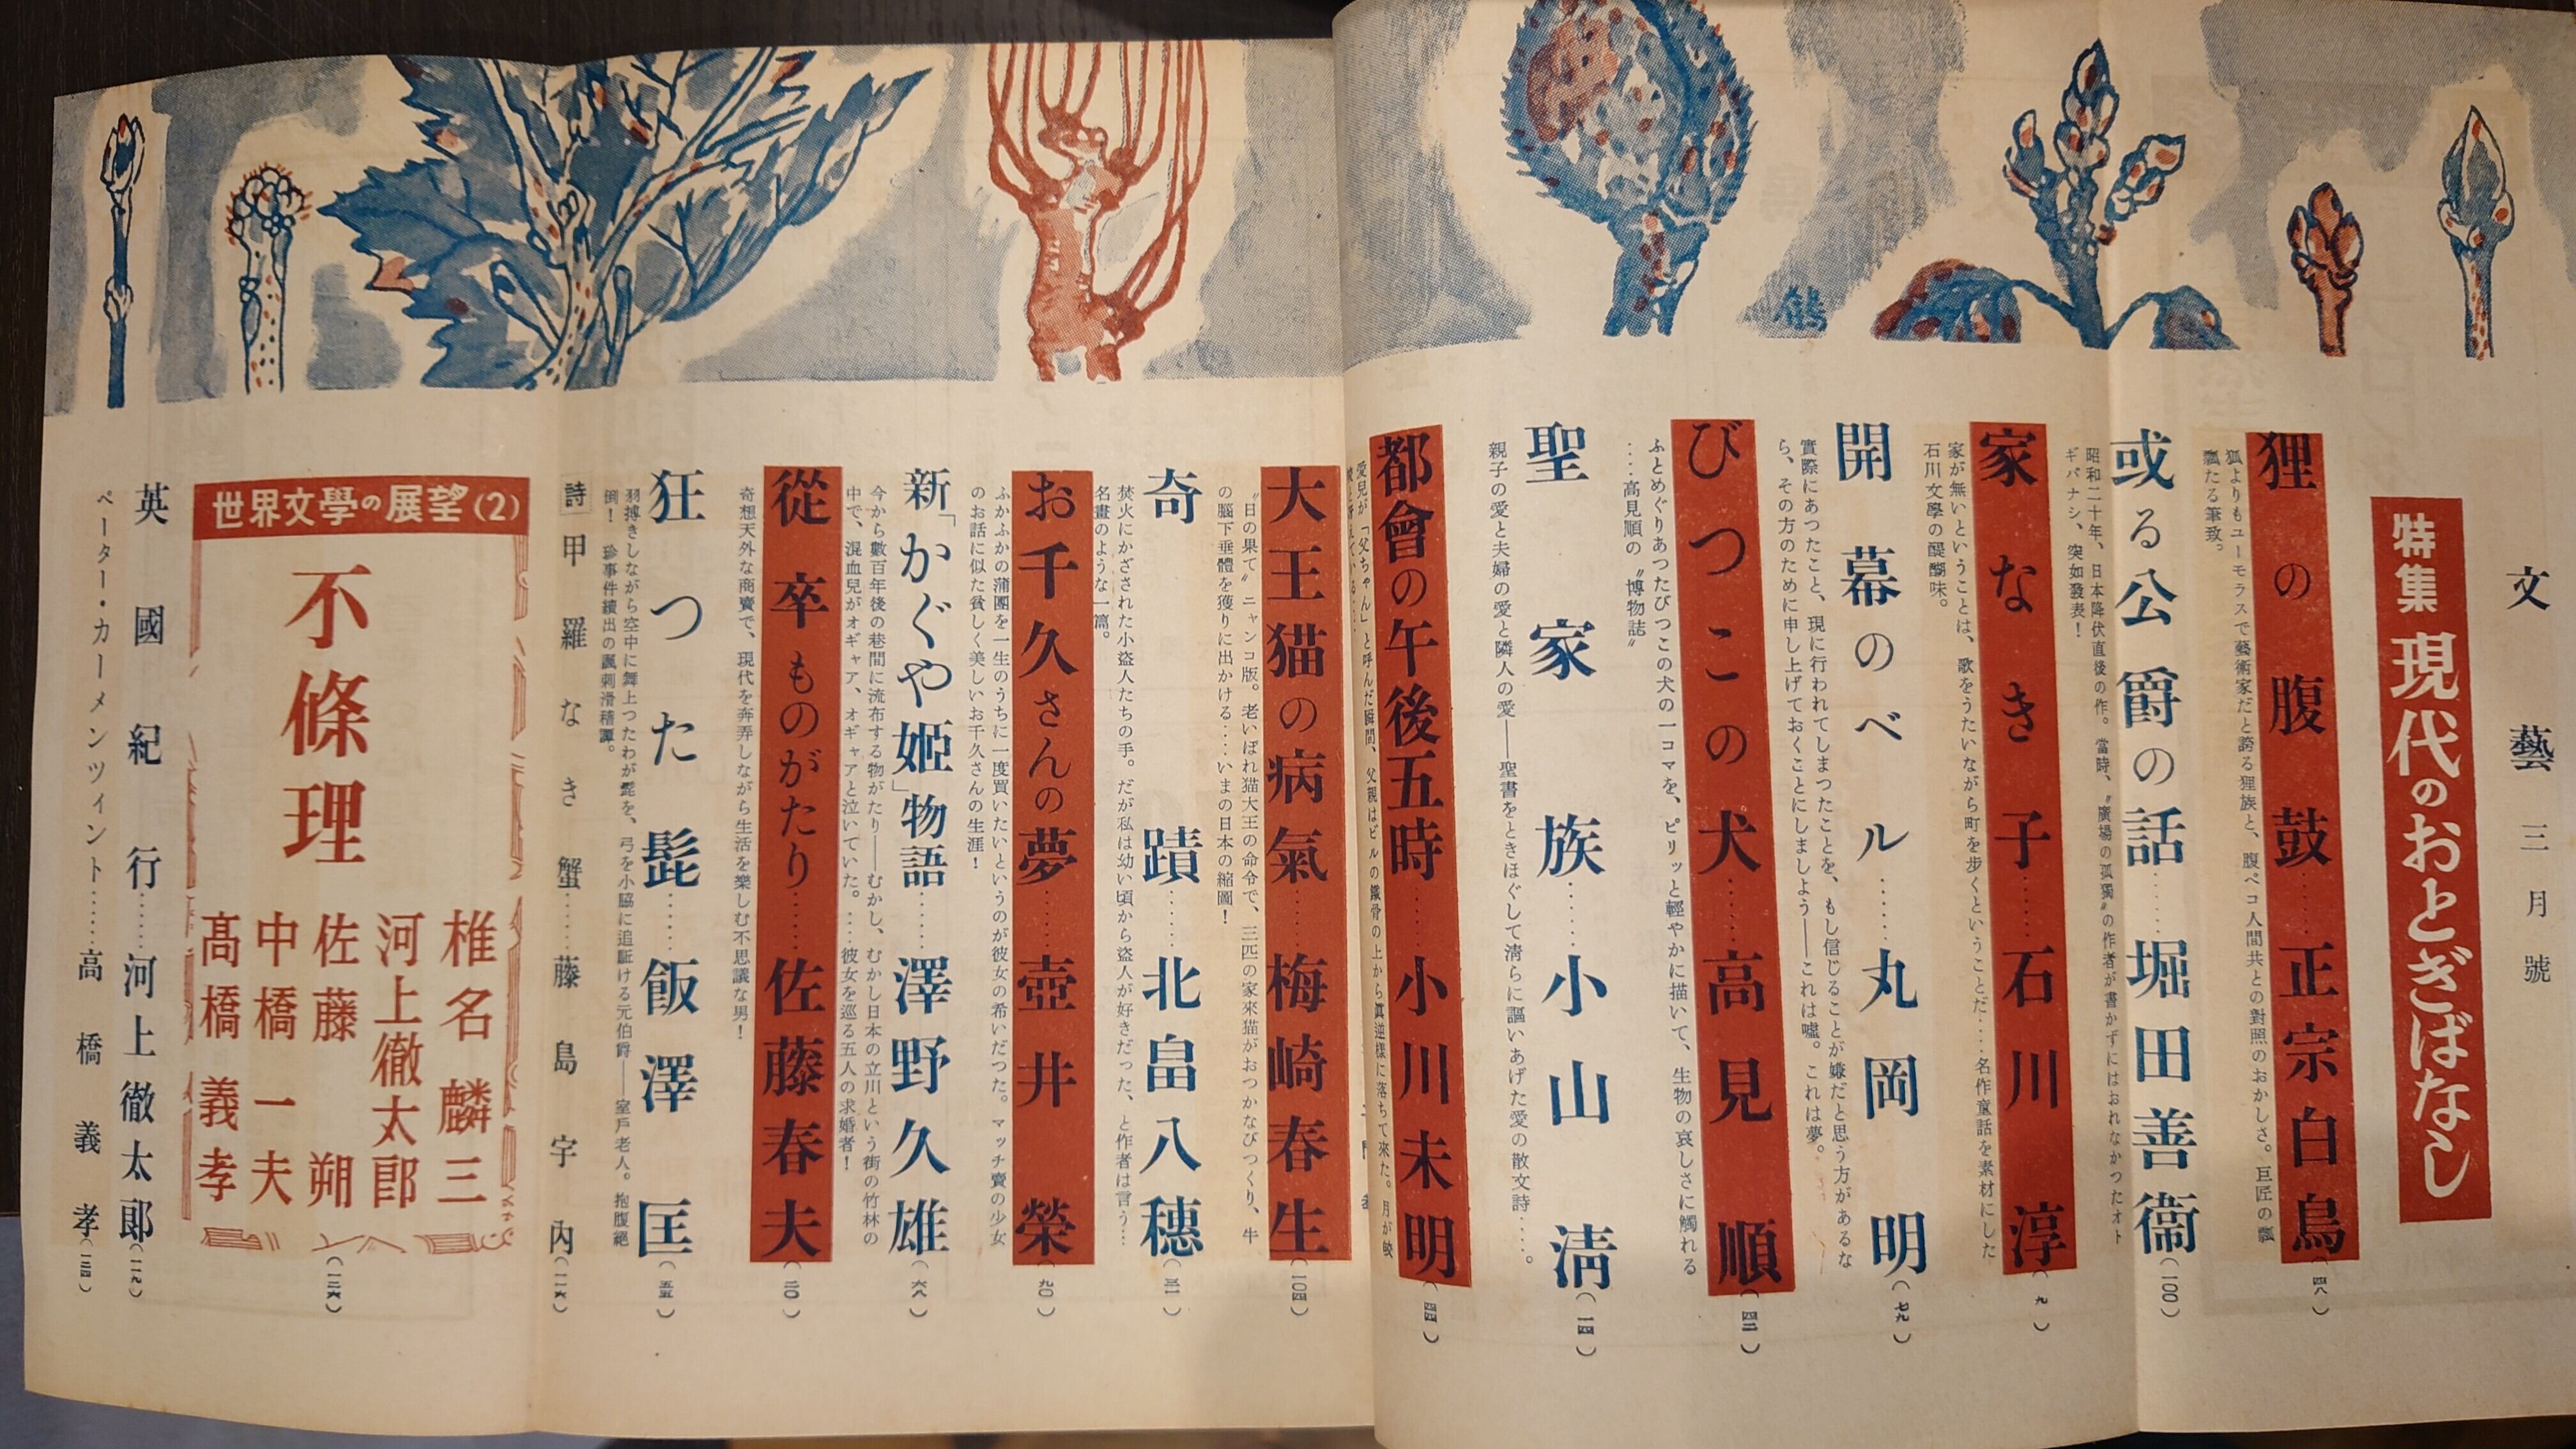 文藝 三月號
特集 現代のおとぎばなし
狸の腹鼓……正宗白鳥(四八)
狐よりもユーモラスで藝術家だと誇る狸族と、腹ペコ人間共との對照のおかしさ。巨匠の飄
飄たる筆致。
或る公爵の話……堀田善衞(一〇〇)
昭和二十年、日本降伏直後の作。當時、〝廣場の孤獨〟の作者が書かずにはおれなかつたオト
ギバナシ、突如發表!
家なき子……石川淳(九)
家が無いということは、歌をうたいながら町を歩くということだ……名作童話を素材にした
石川文學の醍醐味。
開幕のベル……丸岡明(七九)
實際にあつたこと、現に行われてしまつたことを、もし信じることが嫌だと思う方があるな
ら、その方のために申し上げておくことにしましよう——これは嘘。これは夢。
びつこの犬……高見順(四二)
ふとめぐりあつたびつこの犬の一コマを、ピリッと輕やかに描いて、生物の哀しさに觸れる
……高見順の〝博物誌〟
聖家族……小山淸(一四)
親子の愛と夫婦の愛と隣人の愛——聖書をときほぐして淸らに謳いあげた愛の散文詩……。
都會の午後五時……小川未明(四四)
愛見が「父ちゃん」と呼んだ瞬間、父親はビルの鐵骨の上から眞逆樣に落ちて來た。月が
大王猫の病氣……梅崎春生(一〇四)
〝日の果て〟ニャンコ版。老いぼれ猫大王の命令で、三匹の家來猫がおつかなびつくり、牛
の腦下垂體を獲りに出かける……いまの日本の縮圖!
奇蹟……北畠八穗(三一)
焚火にかざされた小盜人たちの手。だが私は幼い頃から盜人が好きだつた、と作者は言う…
名畫のような一篇。
お千久さんの夢……壺井榮(九〇)
ふかふかの蒲團を一生のうちに一度買いたいというのが彼女の希いだつた。マッチ賣の少女
のお話に似た貧しく美しいお千久さんの生涯!
新「かぐや姬」物語……澤野久雄(六八)
今から數百年後の巷間に流布する物がたり——むかし、むかし日本の立川という街の竹林の
中で、混血兒がオギャア、オギャアと泣いていた。……彼女を巡る五人の求婚者!
從卒ものがたり……佐藤春夫(二〇)
奇想天外な商賣で、現代を奔弄しながら生活を樂しむ不思議な男!
狂つた髭……飯澤匡(五五)
羽搏きしながら空中に舞上つたわが髭を、弓を小脇に追駈ける元伯爵——室戶老人。抱腹絕
倒! 珍事件續出の諷刺滑稽譚。
詩 甲羅なき蟹……藤島宇內(一一六)
世界文學の展望(2)
不條理
椎名麟三
河上徹太郎
佐藤朔
中橋一夫
髙橋義孝
(一三六)
英國紀行……河上徹太郞(一一九)
ペーター・カーメンツィント……高橋義孝(一三四)